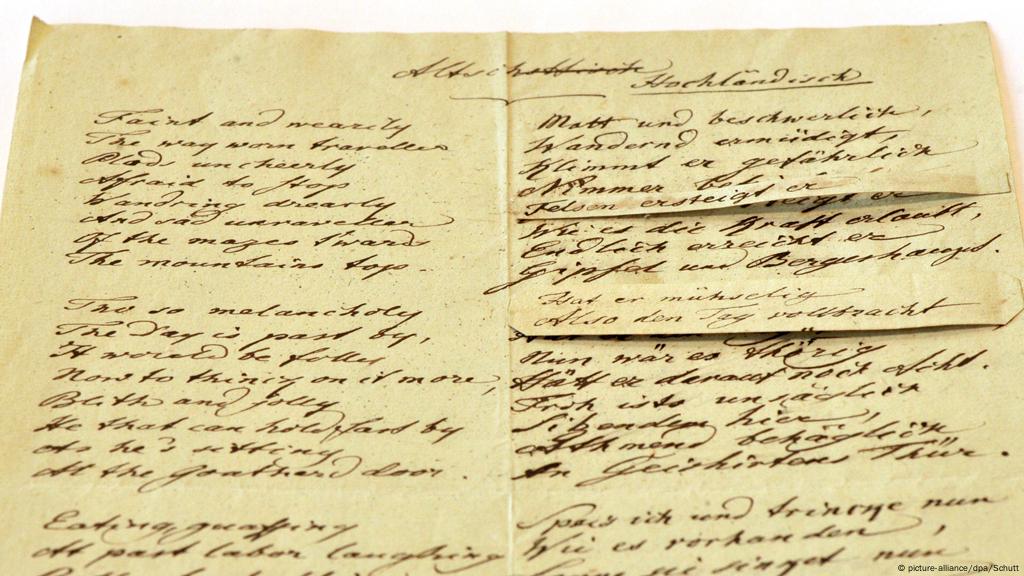 Altschottisch Hochländisch
Faint and wearily
The way worn traveller
Plods uncheerly
Afraid to stop
Wandring drearly
And sad unraveller
Of the mazes t'wards
The mountains top.
Tho so melancholy
The Day is past by,
It would be folly
Now to think on it more,
Blith and jolly
He that can hold fast by
As he's sitting
At the goatherd door.
Eating, quaffing
At past labor laughing
Matt und beschwerlich,
Wandernd ermüdigt,
Klimmt er gefährlich
Nimmer befri
Felsen ersteigt er
Wie es die Kraft erlaubt,
Endlich erreicht er
Gipfel und Bergeshaupt.
Hat er mühselig
Also den Tag vollbracht
Nun wär es thörig
Hätt er darauf noch Acht.
Froh ists unsäglich
Sitzenden hier,
Athmend behäglich
An Geishirtens Thür.
Speis ich und trincke nun
Wie es vorhanden,
Sonne sie sinket nun
© picture-alliance/dpa/Schutt